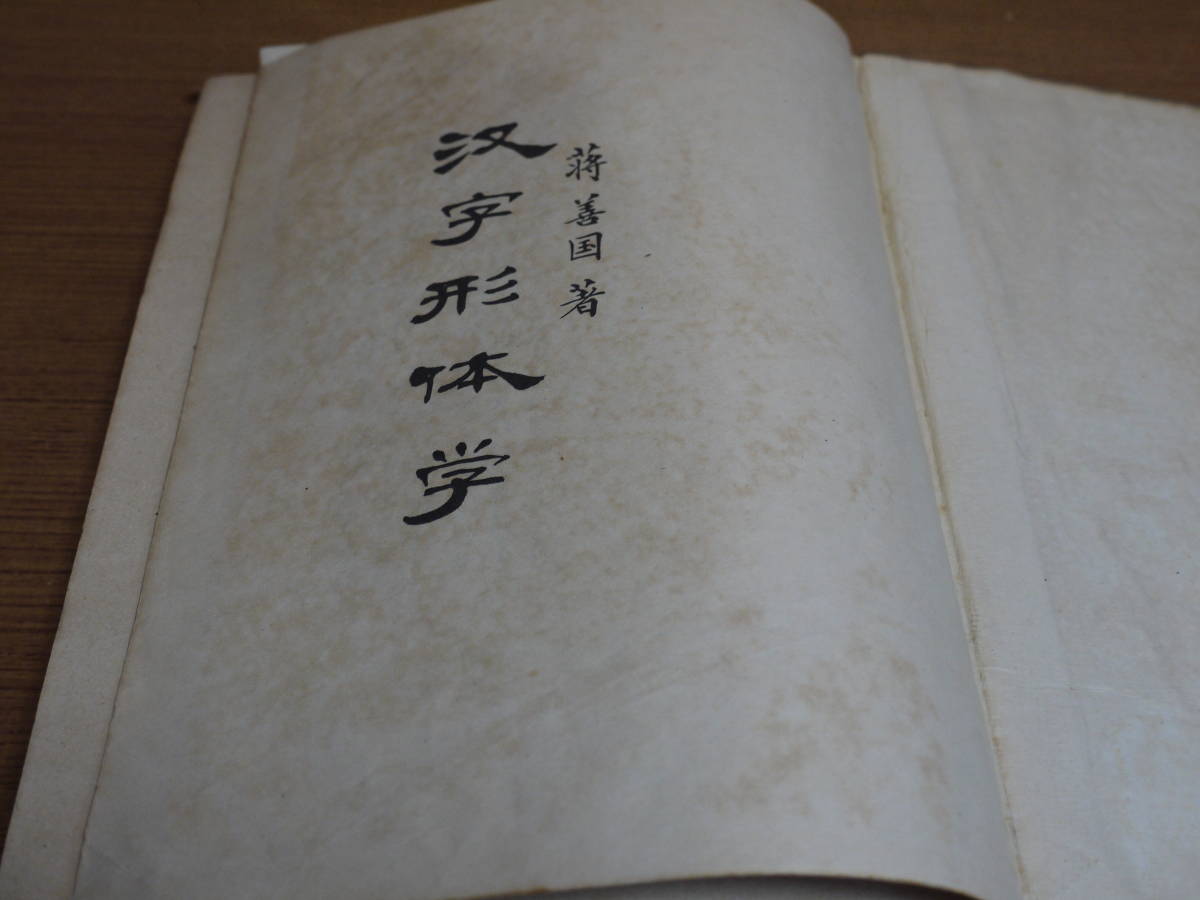 蒋善国著
汉字形体学